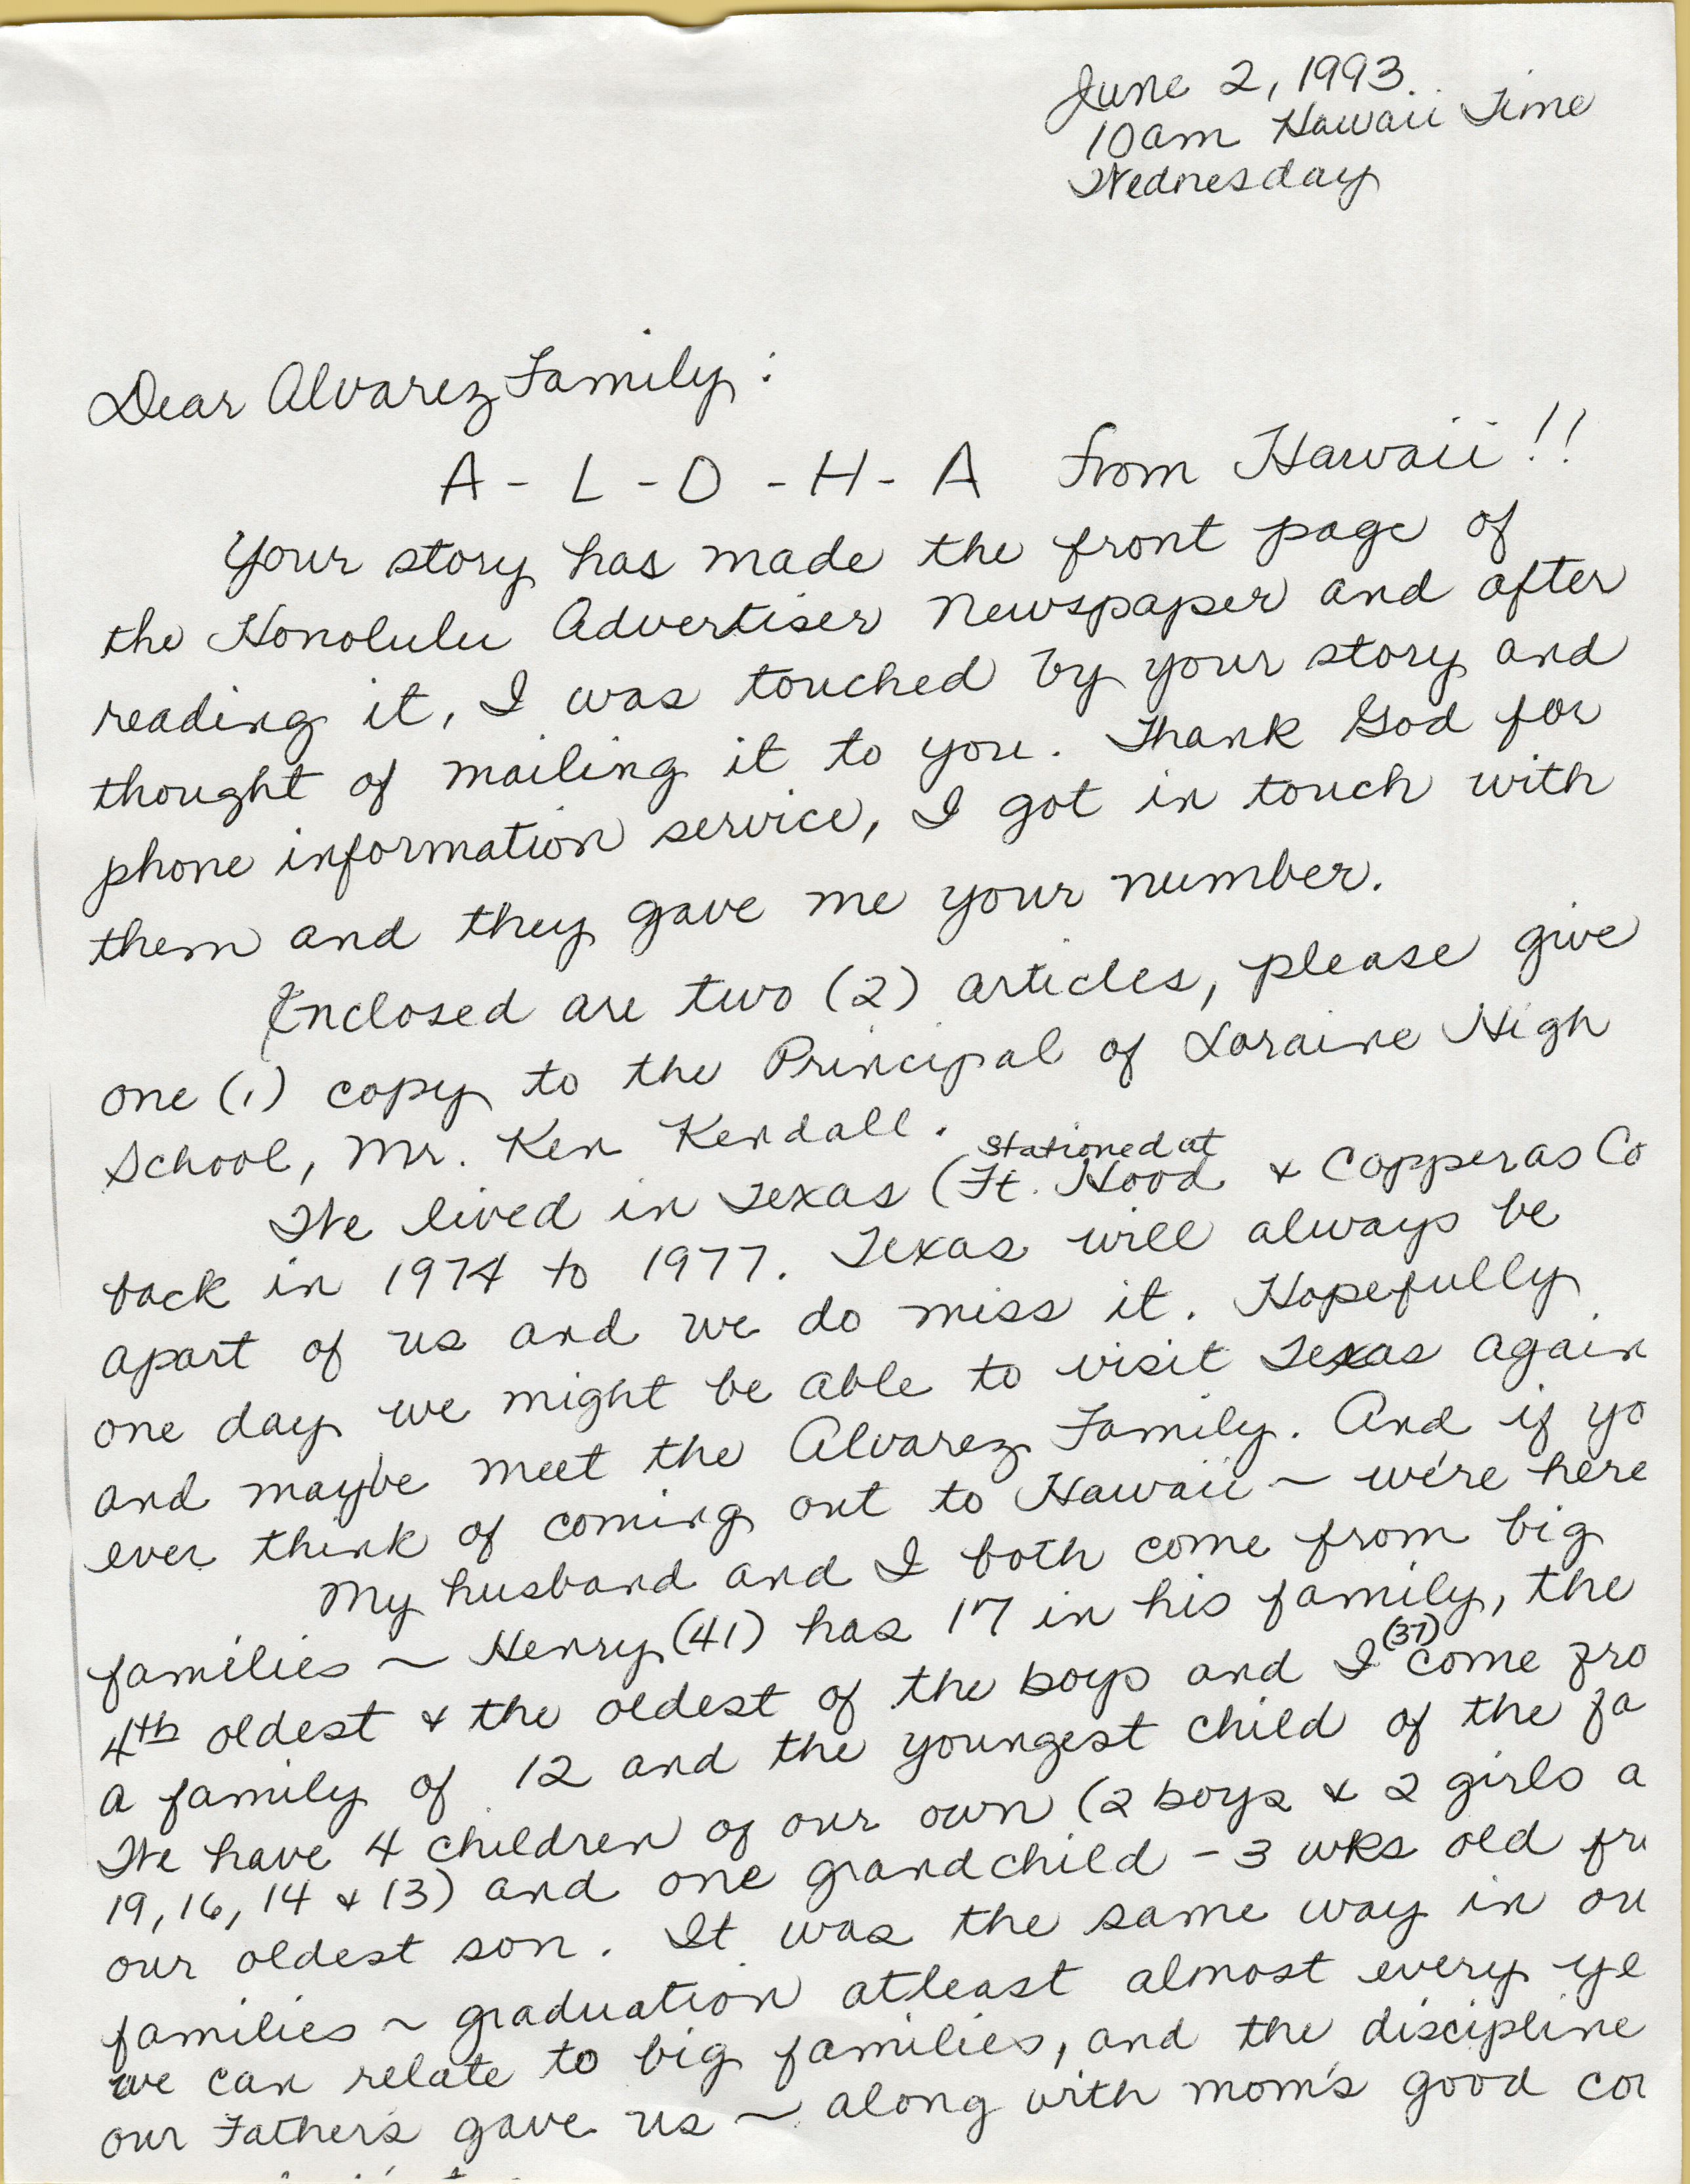 June 2, 1993.
10am Hawaii Time
Wednesday
Dear Alvarez Family:
A - L - O - H - A from Hawaii!!
Your story has made the front page of
the Honolulu Advertiser Newspaper and after
reading it, I was touched by your story and
thought of mailing it to you. Thank God for
phone information service, I got in touch with
them and they gave me your number.
Enclosed are two (2) articles, please give
one (1) copy to the Principal of Loraine High
School, Mr. Ken Kendall.
Stationed at
We lived in Texas (Ft. Hood & Copperas Co
back in 1974 to 1977. Texas will always be
apart of us and we do miss it. Hopefully
one day we might be able to visit Texas again
and maybe meet the Alvarez Family. And if yo
ever think of coming out to Hawaii ~ we're here
My husband and I both come from big
families ~ Henry (41) has 17 in his family, the
(37)
4th oldest & the oldest of the boys and I come fro
a family of 12 and the youngest child of the fa
We have 4 children of our own (2 boys & 2 girls a
19, 16, 14 & 13) and one grandchild - 3 wks old fr
our oldest son. It was the same way in ou
families ~ graduation atleast almost every ye
we can relate to big families, and the discipline
our Father's gave us ~ along with mom's good co